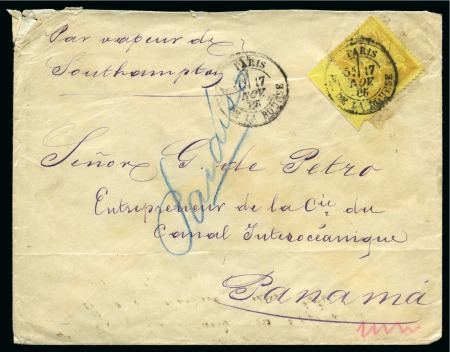 Par vapeur de
Southampton
PARIS
17
NOV
85
DE LA BOURSE
PARIS
17
NOV
85
DE LA BOURSE
Señor G de Petro
Entrepreneur de la Cie du
Canal Interocéanique
Panamá